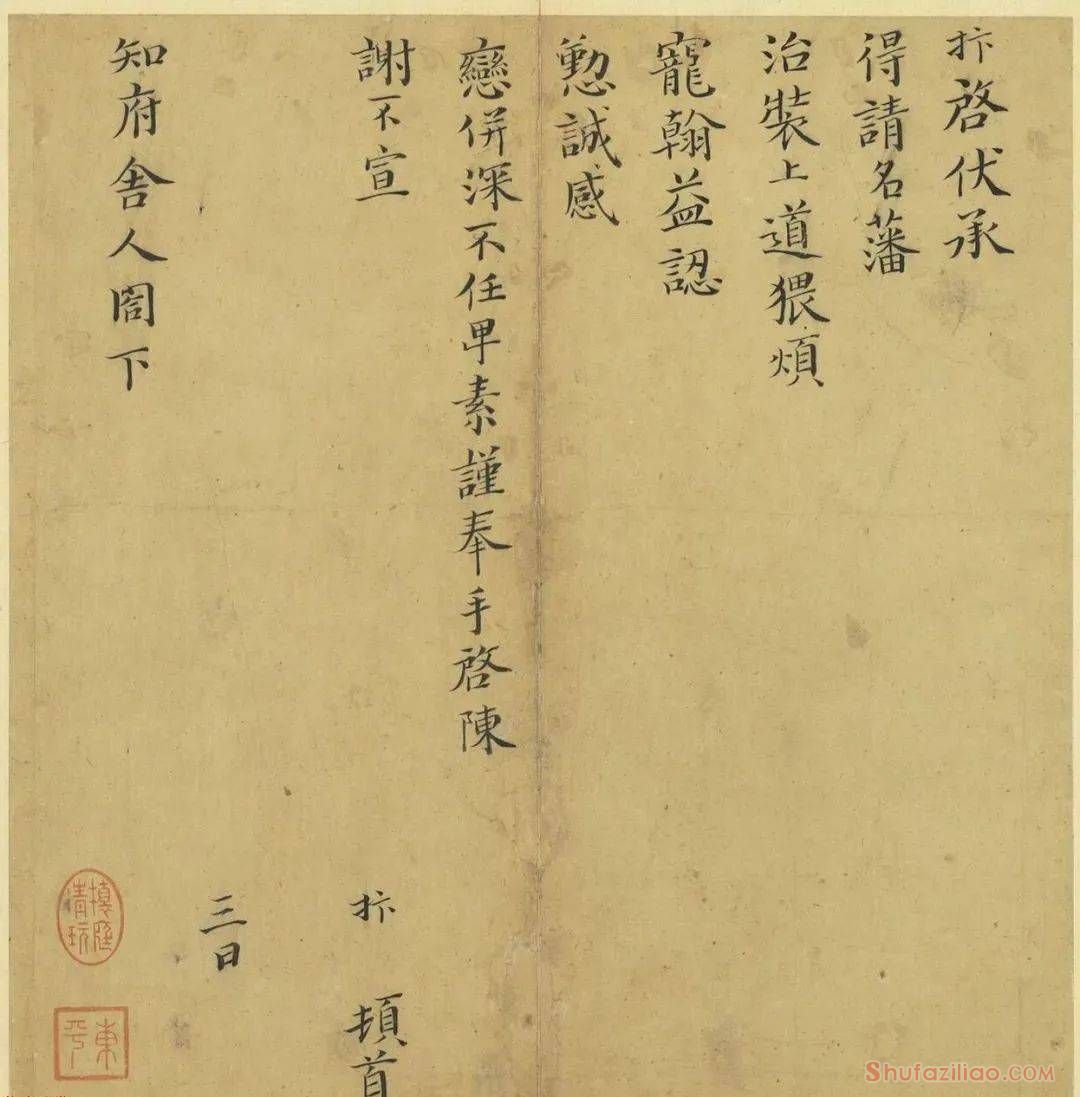 抃啓伏承
得請名藩
治裝上道猥煩
寵翰益認
懃誠感
戀併深不任卑素謹奉手啓陳
謝不宣
抃 頓首
三日
知府舍人閤下
清玩
東平
Shufaziliao.COM